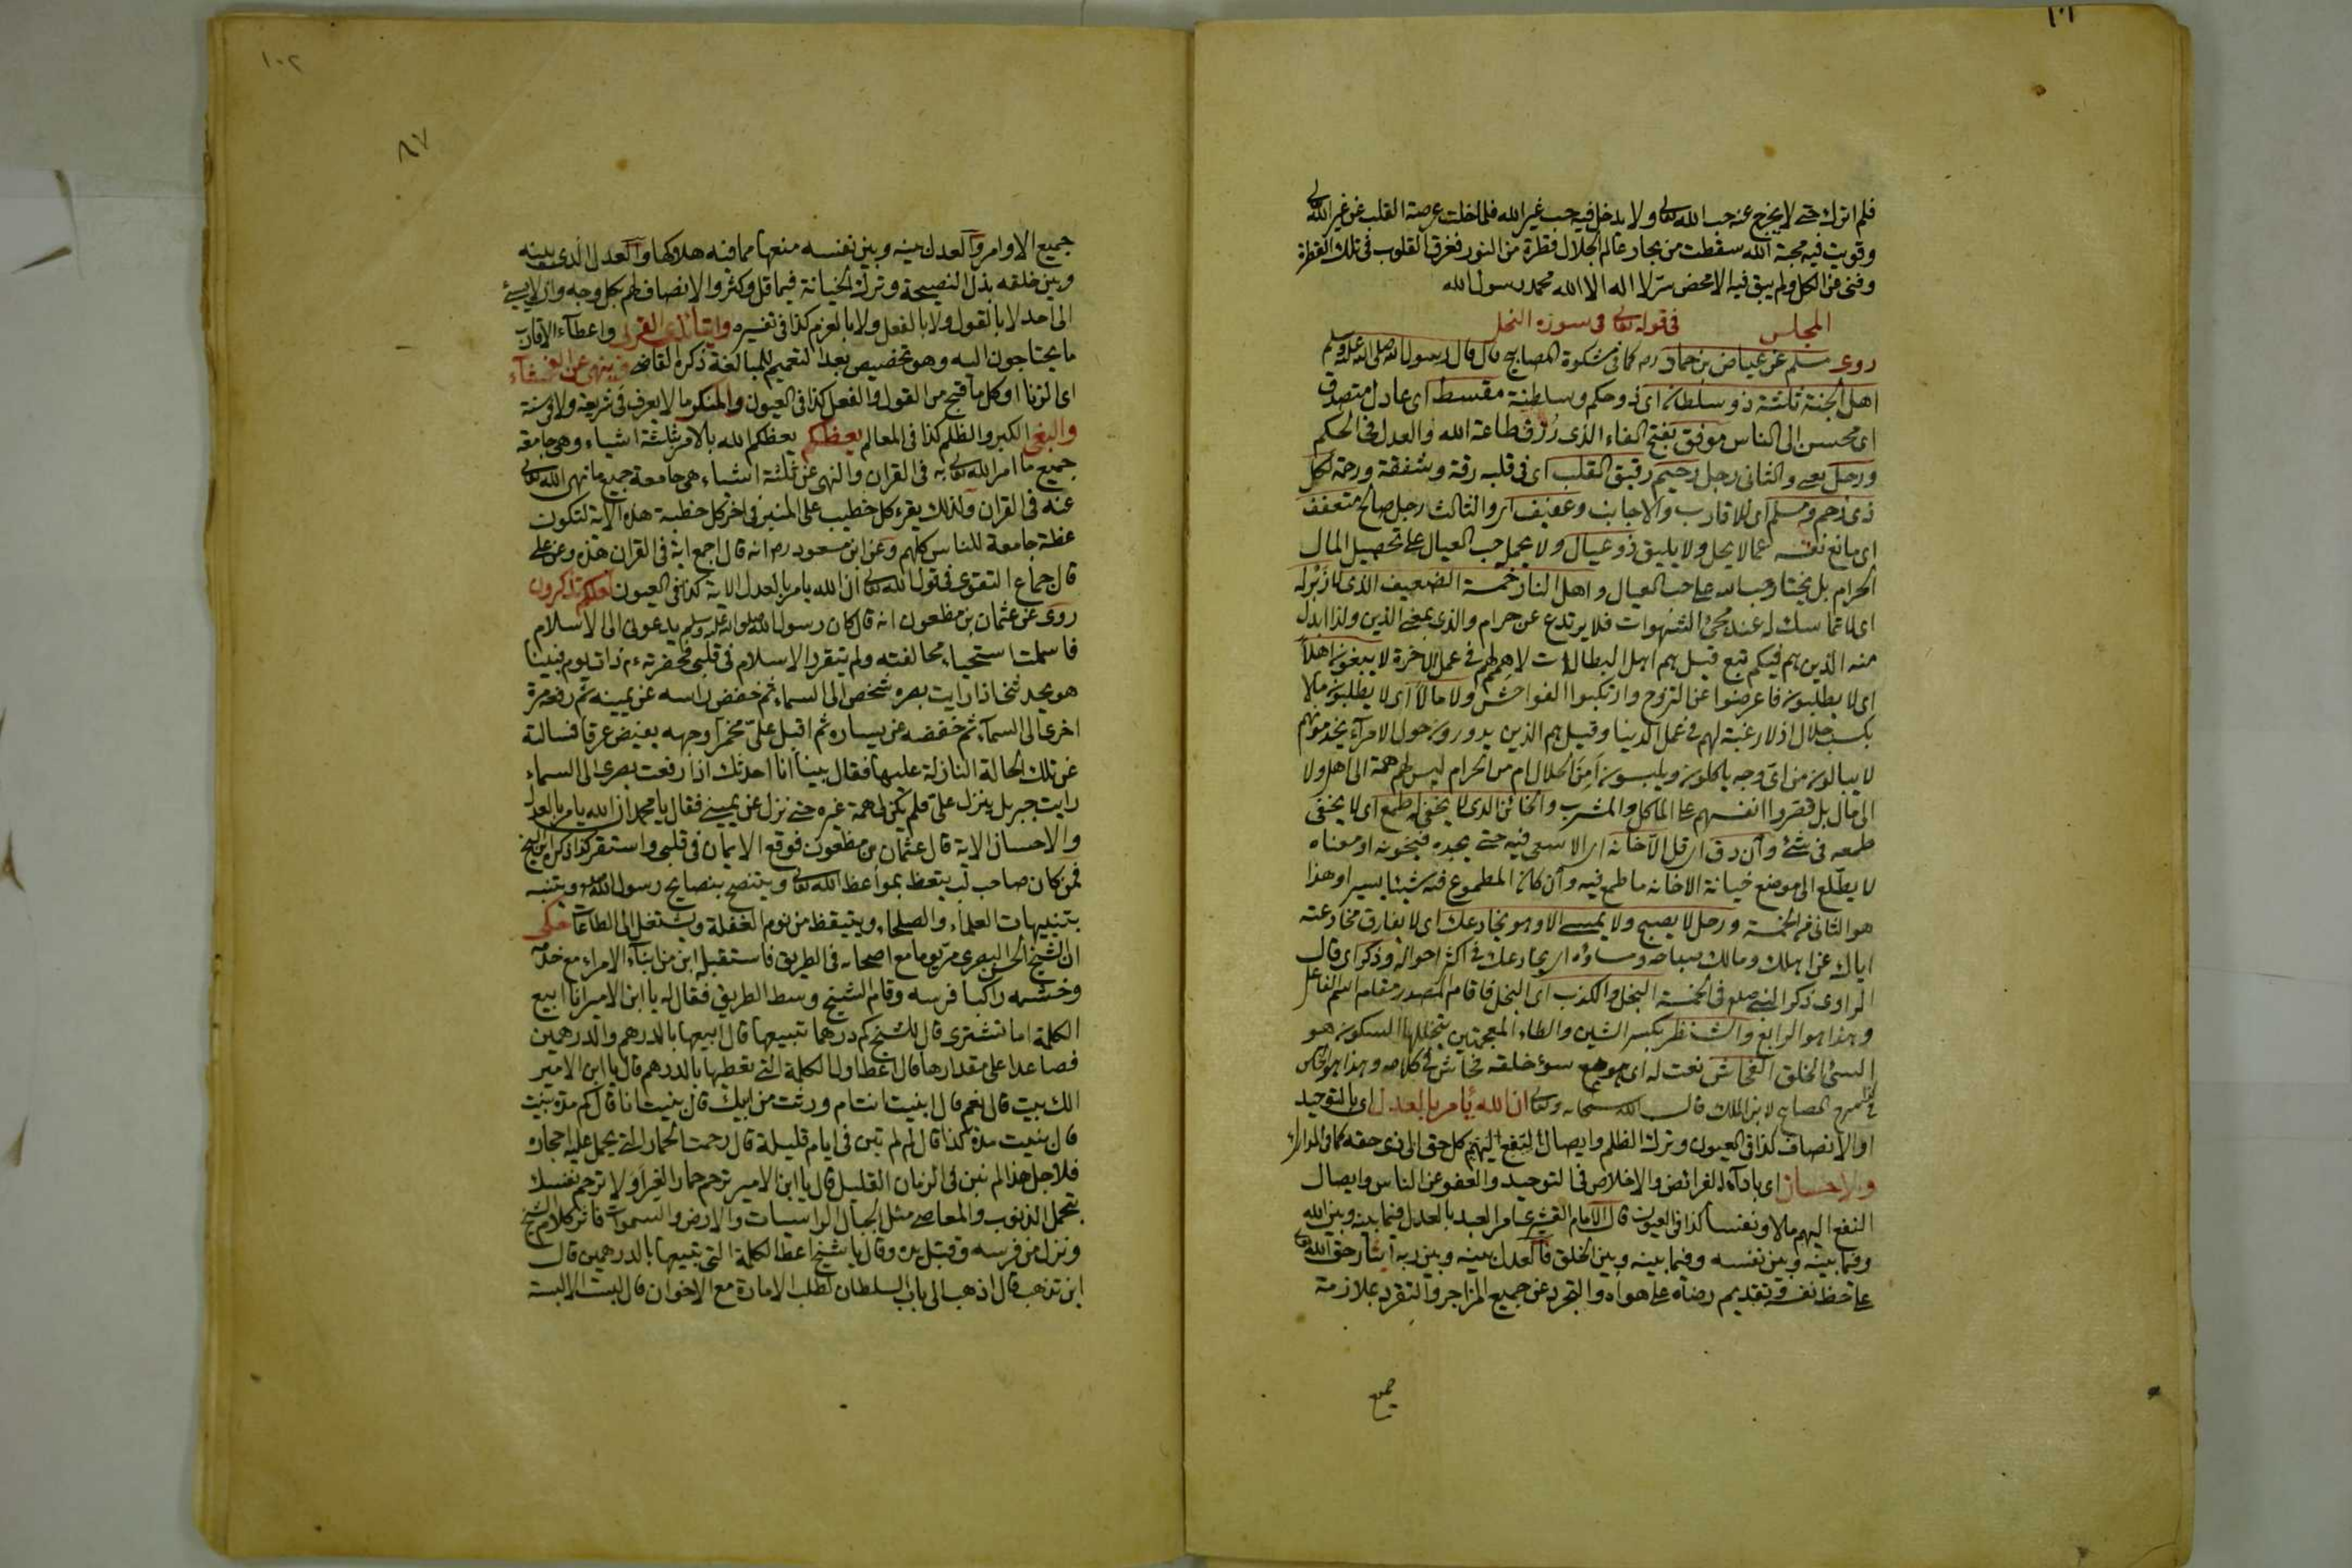 ١٠١
فلم اترك حتى لا يخرج عنه حب الله تعالى ولا يدخل فيه حب غير الله فلما خلت عرصة القلب عن غير الله تعالى
وقويت فيه محبة الله سقطت من بحار عالم الجلال قطرة من النور فغرق القلوب في تلك القطرة
وفنى من الكل ولم يبق فيه الا محض سر لا اله الا الله محمد رسول الله
المجلس في قوله تعالى في سورة النحل
روى مسلم عن عياض بن حماد رض كما في مشكوة المصابيح قال قال رسول الله صلى الله عليه وسلم
اهل الجنة ثلثة ذو سلطان اى ذو حكم وسلطنة مقسط اى عادل متصدق
اى محسن الى الناس موفق بفتح الفاء الذى رزق طاعة الله والعدل في الحكم
ورجل يعنى والثانى رجل رحيم رقيق القلب اى في قلبه رقة وشفقة ورحمة لكل
ذى رحم ومسلم اى للاقارب والاجانب وعفيف اى والثالث رجل صالح متعفف
اى مانع نفسه عما لا يحل ولا يليق ذو عيال ولا يحمل حب العيال على تحصيل المال
الحرام بل يختار حب الله على حب العيال واهل النار خمسة الضعيف الذى لا زبر له
اى لا تماسك له عند مجئ الشهوات فلا يرتدع عن حرام والذى بمعنى الذين ولذا ابدل
منه الذين هم فيكم تبع قيل هم اهل البطالات لا هم لهم في عمل الآخرة لا يبغون اهلا
اى لا يطلبون فاعرضوا عن التزوج وارتكبوا الفواحش ولا مالا اى لا يطلبون مالا
بكسب حلال اذ لا رغبة لهم في عمل الدنيا وقيل هم الذين يدورون حول الامراء يخدمونهم
لا يبالون من اى وجه ياكلون ويلبسون أمن الحلال ام من الحرام ليس لهم همة الى اهل ولا
الى مال بل قصروا انفسهم على الماكل والمشرب والخائن الذى لا يخفى له طمع اى لا يخفى
طمعه في شئ وان دق اى قل الا خانه اى الا سعى فيه حتى يجده فيخونه او معناه
لا يطلع الى موضع خيانة الا خانه ما طمع فيه وان كان المطموع فيه شيئا يسيرا وهذا
هو الثانى من الخمسة ورجل لا يصبح ولا يمسى الا وهو يخادعك اى لا يفارق مخادعته
اياك عن اهلك ومالك صباحه ومساؤه اى يخادعك في اكثر احواله وذكر اى قال
الراوى ذكر النبى صلعم في الخمسة البخل والكذب اى البخل فاقام المصدر مقام اسم الفاعل
وهذا هو الرابع والشنظير بكسر الشين والظاء المعجمتين يتخللها السكون هو
السئ الخلق الفحاش نعت له اى هو مع سوء خلقه فحاش في كلامه وهذا هو الخامس
في شرح المصابيح لابن الملك قال الله سبحانه وتعالى ان الله يأمر بالعدل اى بالتوحيد
او الانصاف كذا في العيون وترك الظلم وايصال النفع اليهم كل حق الى ذى حقه كما في المدارك
والاحسان اى باداء الفرائض والاخلاص في التوحيد والعفو عن الناس وايصال
النفع اليهم مالا ونفسا كذا في العيون قال الامام القشيرى امر العبد بالعدل فيما بينه وبين الله
وفيما بينه وبين نفسه وفيما بينه وبين الخلق فالعدل بينه وبين ربه ايثار حق الله تعالى
على حظ نفسه وتقديم رضاه على هواه والتجرد عن جميع المزاجر والتفرد بملازمة
جميع
١٠٢
٨٧
جميع الاوامر والعدل بينه وبين نفسه منعها مما فيه هلاكها والعدل الذى بينه
وبين خلقه بذل النصيحة وترك الخيانة فيما قل وكثر والانصاف لهم بكل وجه وان لا يسئ
الى احد لا بالقول ولا بالفعل ولا بالعزم كذا في تفسيره وايتاء ذى القربى واعطاء الاقارب
ما يحتاجون اليه وهو تخصيص بعد التعميم للمبالغة ذكره القاضى وينهى عن الفحشاء
اى الزنا او كل ما قبح من القول والفعل كذا في العيون والمنكر ما لا يعرف في شريعة ولا في سنة
والبغى الكبر والظلم كذا في المعالم يعظكم يعظكم الله بالامر بثلثة اشياء وهى جامعة
جميع ما امر الله تعالى به في القران والنهى عن ثلثة اشياء هى جامعة جميع ما نهى الله تعالى
عنه في القران ولذلك يقرء كل خطيب على المنبر في اخر كل خطبة هذه الآية لتكون
عظة جامعة للناس كلهم وعن ابن مسعود رض انه قال اجمع اية في القران هذه وعن على
قال جماع التقوى في قول الله تعالى ان الله يامر بالعدل الاية كذا في العيون لعلكم تذكرون
روى عن عثمان بن مظعون انه قال كان رسول الله صلى الله عليه وسلم يدعونى الى الاسلام
فاسلمت استحياء مخالفته ولم يتقرر الاسلام في قلبى فحضرته ذات يوم فبينا
هو يحدثنى اذا رايت بصره شخص الى السماء ثم خفض راسه عن يمينه ثم رفعه مرة
اخرى الى السماء ثم خفضه عن يساره ثم اقبل على محمرا وجهه يفيض عرقا فسالته
عن تلك الحالة النازلة عليها فقال بينا انا احدثك اذا رفعت بصرى الى السماء
رايت جبريل ينزل على فلم يكن لى همة غيره حتى نزل عن يمينى فقال يا محمد ان الله يامر بالعدل
والاحسان الاية قال عثمان بن مظعون فوقع الايمان في قلبى واستقر كذا ذكره ابن الشيخ
فمن كان صاحب لب يتعظ بمواعظ الله تعالى وينتصح بنصايح رسول الله صلعم ويتنبه
بتنبيهات العلماء والصلحاء ويتيقظ من نوم الغفلة ويشتغل الى الطاعات حكى
ان الشيخ الحسن البصرى مر يوما مع اصحابه في الطريق فاستقبله ابن من ابناء الامراء مع خدمه
وخشمه راكبا فرسه وقام الشيخ وسط الطريق فقال له يا ابن الامير انا ابيع
الكلمة اما تشترى قال للشيخ كم درهما تبيعها قال ابيعها بالدرهم والدرهمين
فصاعدا على مقدارها قال اعط اولا الكلمة التى تعطيها بالدرهم قال يا ابن الامير
الك بيت قال نعم قال ابنيت انت ام ورثت من ابيك قال بنيت انا قال كم مدة بنيت
قال بنيت مدة كذا قال لم لم تبن في ايام قليلة قال رحمت الحمار الذى يحمل عليه احجاره
فلاجل هذا لم نبن في الزمان القليل قال يا ابن الامير ترحم حمار الغير أولا ترحم نفسك
تحمل الذنوب والمعاصى مثل الجبال الراسيات والارض والسموات فاثر كلام الشيخ
ونزل من فرسه وقبل يده وقال يا شيخ اعط الكلمة التى تبيعها بالدرهمين قال
اين تذهب قال اذهب الى باب السلطان لطلب الامارة مع الاخوان قال لبست الالبسة